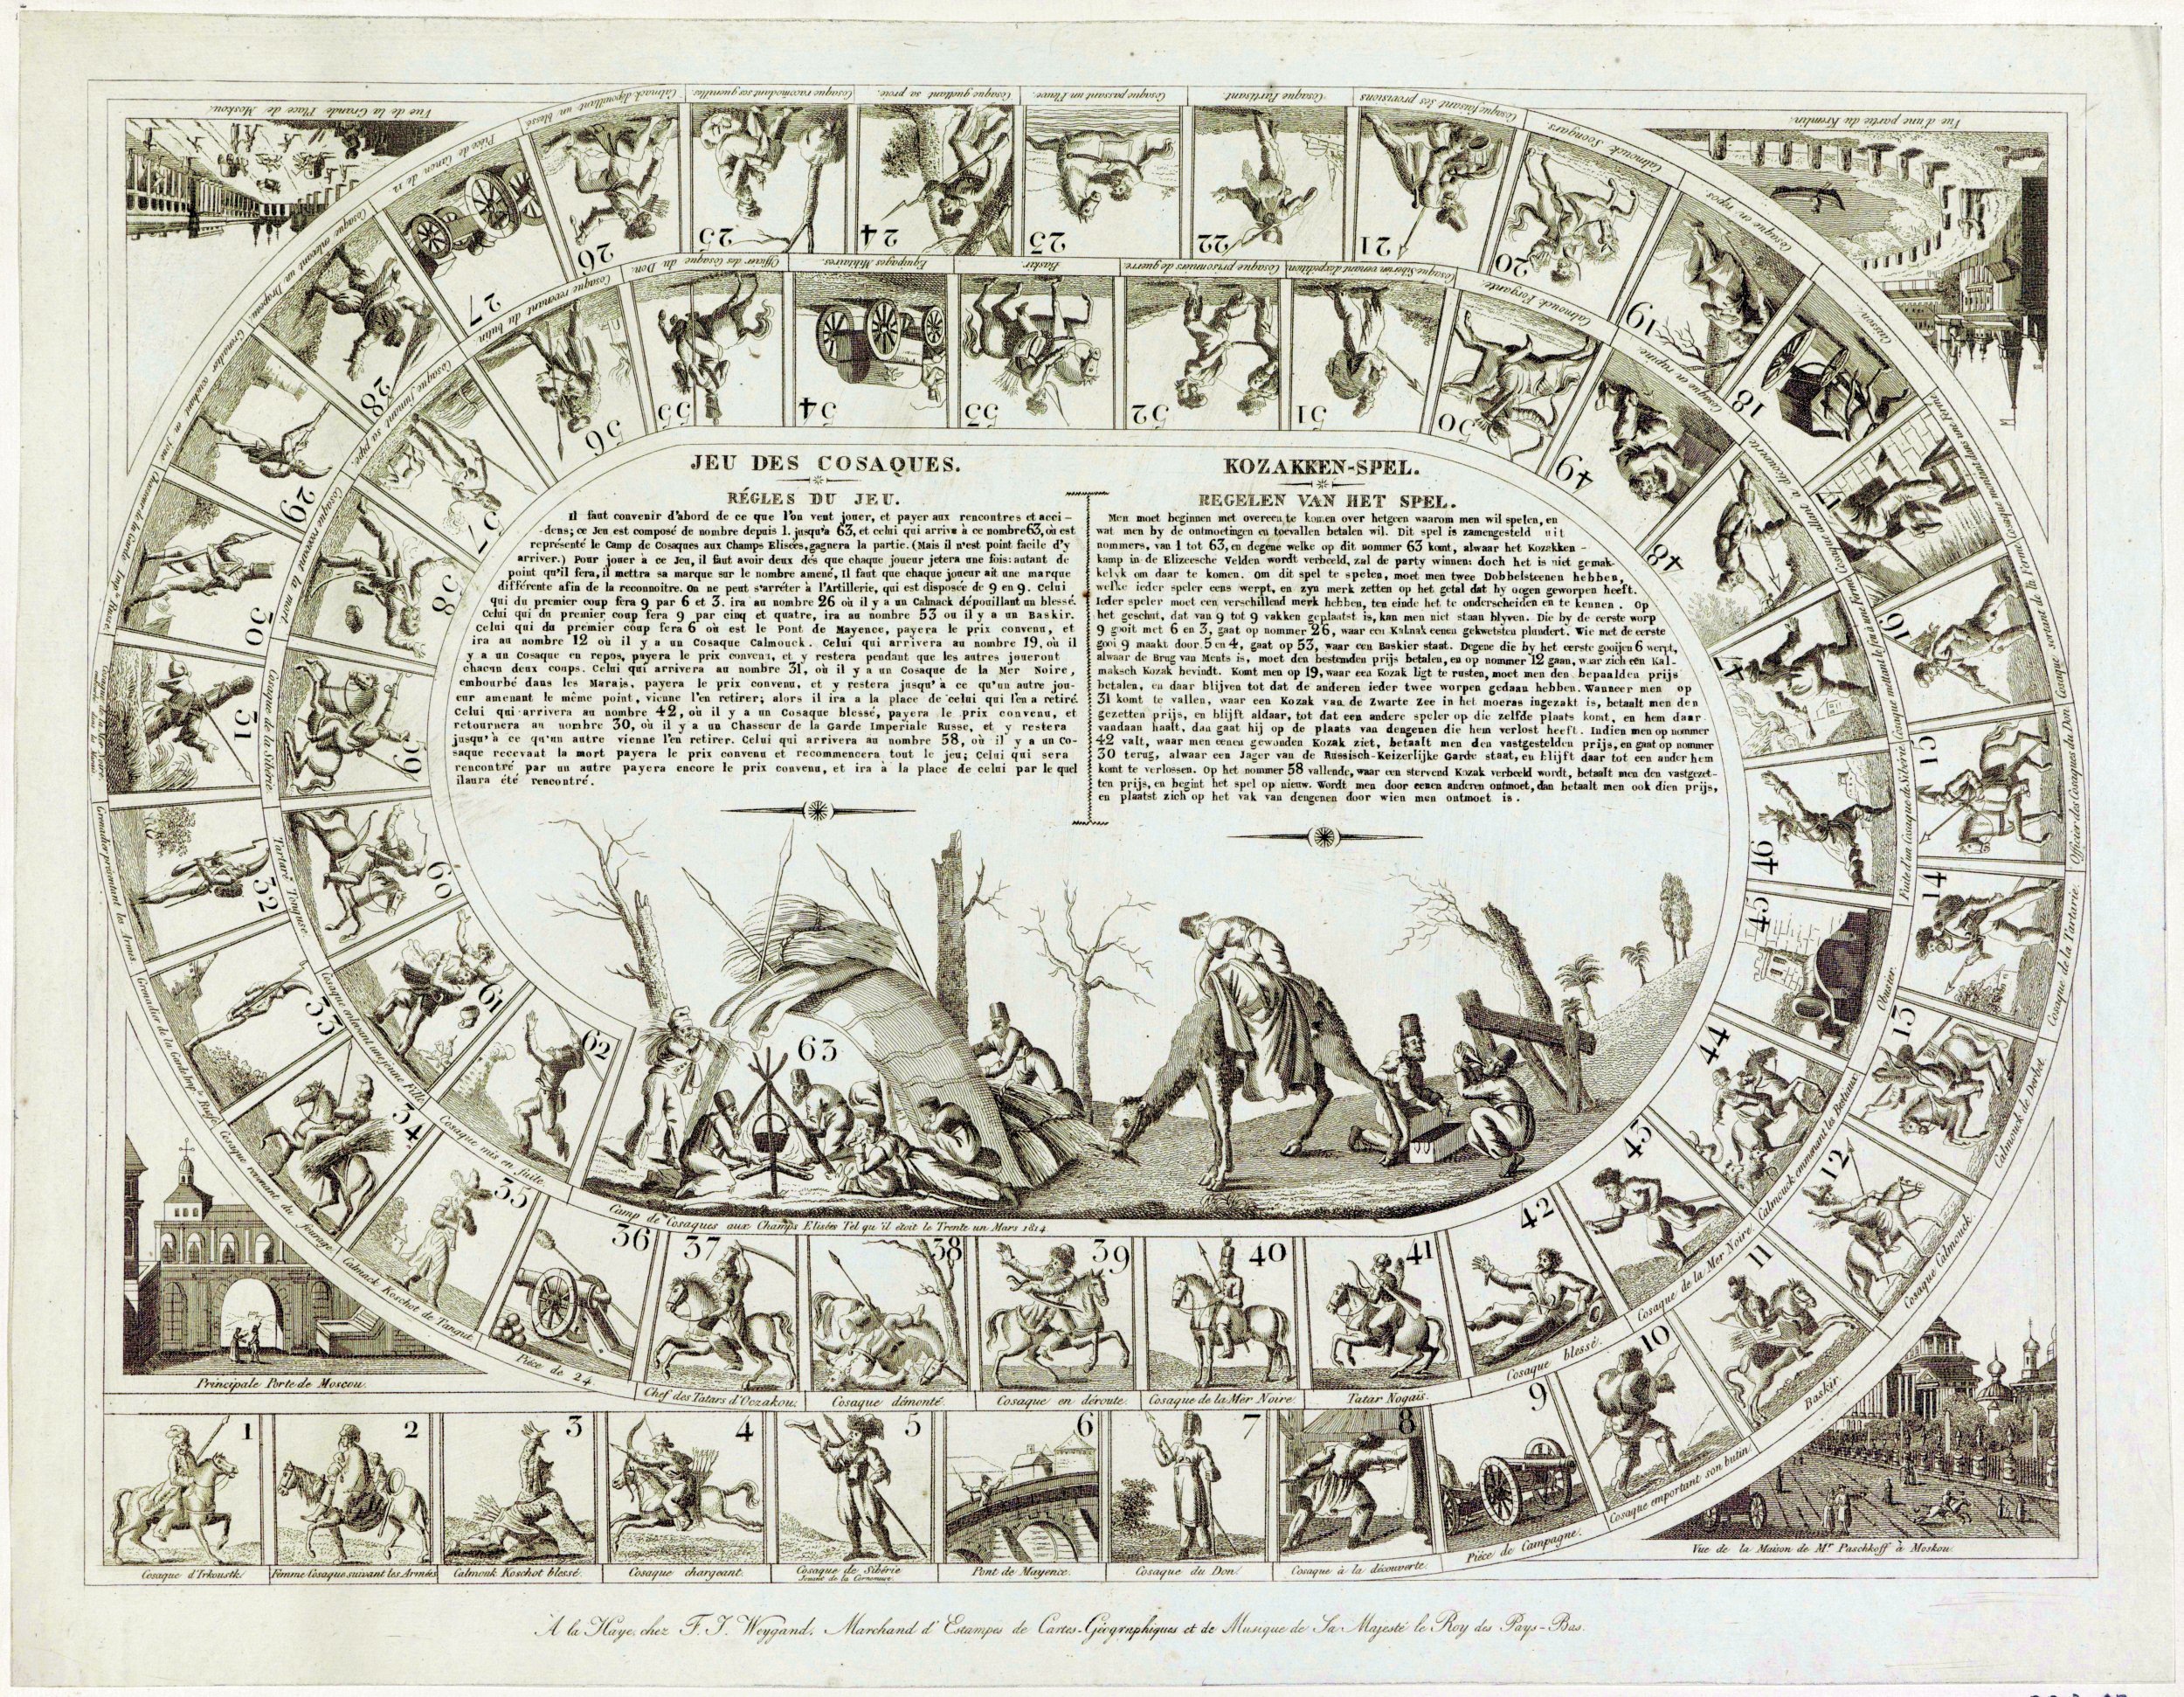 JEU DES COSAQUES.
RÉGLES DU JEU.
Il faut convenir d'abord de ce que l'on veut jouer, et payer aux rencontres et acci-
-dens; ce Jeu est composé de nombre depuis 1. jusqu'à 63, et celui qui arrive à ce nombre 63, où est
représenté le Camp de Cosaques aux Champs Elisées, gagnera la partie. (Mais il n'est point facile d'y
arriver.) Pour jouer à ce Jeu, il faut avoir deux dés que chaque joueur jetera une fois: autant de
point qu'il fera, il mettra sa marque sur le nombre amené, Il faut que chaque joueur ait une marque
différente afin de la reconnoitre. On ne peut s'arrêter à l'Artillerie, qui est disposée de 9 en 9. Celui
qui du premier coup fera 9 par 6 et 3. ira au nombre 26 où il y a un Calmack dépouillant un blessé.
Celui qui du premier coup fera 9 par cinq et quatre, ira au nombre 53 ou il y a un Baskir.
Celui qui du premier coup fera 6 où est le Pont de Mayence, payera le prix convenu, et
ira au nombre 12 où il y a un Cosaque Calmouck. Celui qui arrivera au nombre 19, où il
y a un Cosaque en repos, payera le prix convenu, et y restera pendant que les autres joueront
chacun deux coups. Celui qui arrivera au nombre 31, où il y a un Cosaque de la Mer Noire,
embourbé dans les Marais, payera le prix convenu, et y restera jusqu'à ce qu'un autre jou-
eur amenant le même point, vienne l'en retirer; alors il ira a la place de celui qui l'en a retiré.
Celui qui arrivera au nombre 42, où il y a un Cosaque blessé, payera le prix convenu, et
retournera au nombre 30, où il y a un Chasseur de la Garde Imperiale Russe, et y restera
jusqu'à ce qu'un autre vienne l'en retirer. Celui qui arrivera au nombre 58, où il y a un Co-
saque recevant la mort payera le prix convenu et recommencera tout le jeu; Celui qui sera
rencontré par un autre payera encore le prix convenu, et ira à la place de celui par le quel
il aura été rencontré.
KOZAKKEN-SPEL.
REGELEN VAN HET SPEL.
Men moet beginnen met overeen te komen over hetgeen waarom men wil spelen, en
wat men by de ontmoetingen en toevallen betalen wil. Dit spel is zamengesteld uit
nommers, van 1 tot 63, en degene welke op dit nommer 63 komt, alwaar het Kozakken-
kamp in de Elizeesche Velden wordt verbeeld, zal de party winnen: doch het is niet gemak-
kelyk om daar te komen. Om dit spel te spelen, moet men twee Dobbelsteenen hebben,
welke ieder speler eens werpt, en zyn merk zetten op het getal dat hy oogen geworpen heeft.
Ieder speler moet een verschillend merk hebben, ten einde het te onderscheiden en te kennen. Op
het geschut, dat van 9 tot 9 vakken geplaatst is, kan men niet staan blyven. Die by de eerste worp
9 gooit met 6 en 3, gaat op nommer 26, waar een Kalmak eenen gekwetsten plundert. Wie met de eerste
gooi 9 maakt door 5 en 4, gaat op 53, waar een Baskier staat. Degene die by het eerste gooijen 6 werpt,
alwaar de Brug van Ments is, moet den bestemden prijs betalen, en op nommer 12 gaan, waar zich een Kal-
maksch Kozak bevindt. Komt men op 19, waar een Kozak ligt te rusten, moet men den bepaalden prijs
betalen, en daar blijven tot dat de anderen ieder twee worpen gedaan hebben. Wanneer men op
31 komt te vallen, waar een Kozak van de Zwarte Zee in het moeras ingezakt is, betaalt men den
gezetten prijs, en blijft aldaar, tot dat een andere speler op die zelfde plaats komt, en hem daar
vandaan haalt, dan gaat hij op de plaats van dengenen die hem verlost heeft. Indien men op nommer
42 valt, waar men eenen gewonden Kozak ziet, betaalt men den vastgestelden prijs, en gaat op nommer
30 terug, alwaar een Jager van de Russisch-Keizerlijke Garde staat, en blijft daar tot een ander hem
komt te verlossen. Op het nommer 58 vallende, waar een stervend Kozak verbeeld wordt, betaalt men den vastgezet-
ten prijs, en begint het spel op nieuw. Wordt men door eenen anderen ontmoet, dan betaalt men ook dien prijs,
en plaatst zich op het vak van dengenen door wien men ontmoet is.
1
Cosaque d'Irkoustk.
2
Femme Cosaque suivant les Armées
3
Calmouk Koschot blessé.
4
Cosaque chargeant.
5
Cosaque de Sibérie
Jouant de la Cornemuse.
6
Pont de Mayence.
7
Cosaque du Don.
8
Cosaque à la découverte.
9
Pièce de Campagne.
10
Cosaque emportant son butin
11
Baskir.
12
Cosaque Calmouck.
13
Calmouck de Derbet.
14
Cosaque de la Tartarie.
15
Officier des Cosaques du Don.
16
Cosaque sortant de la Ferme.
17
Cosaque montant dans une Ferme
18
Caisson.
19
Cosaque en repos.
20
Calmouck Soongars.
21
Cosaque faisant ses provisions
22
Cosaque Partisant.
23
Cosaque passant un Fleuve.
24
Cosaque guettant sa proie.
25
Cosaque racomodant ses guenilles
26
Calmack dépouillant un blessé.
27
Pièce de Canon de 12
28
Cosaque enlevant un Drapeau.
29
Grenadier couchant en joue
30
Chasseur de la Garde Imple Russe.
31
Cosaque de la Mer Noire
embourbé dans les Marais.
32
Grenadier présentant les Armes.
33
Grenadier de la Garde Imple Russe
34
Cosaque revenant du fourage.
35
Calmack Koschot de Tangut.
36
Pièce de 24.
37
Chef des Tatars d'Oczakou.
38
Cosaque démonté.
39
Cosaque en déroute.
40
Cosaque de la Mer Noire.
41
Tatar Nogais.
42
Cosaque blessé.
43
Cosaque de la Mer Noire.
44
Calmouck emmenant les Bestiaux.
45
Obusier.
46
Fuite d'un Cosaque de Sibérie.
47
Cosaque mettant le feu à une ferme
48
Cosaque allant à la découverte
49
Cosaque en rapine.
50
Calmouck Torgante.
51
Cosaque Siberien venant d'expédition
52
Cosaque prisonniers de guerre.
53
Baskir.
54
Equipages Militaires.
55
Officier des Cosaque du Don.
56
Cosaque revenant du butin.
57
Cosaque fumant sa pipe.
58
Cosaque recevant la mort
59
Cosaque de la Sibérie.
60
Tartare Tonguse.
61
Cosaque enlevant une jeune Fille
62
Cosaque mis en fuite.
63
Camp de Cosaques aux Champs Elisées Tel qu'il étoit le Trente un Mars 1814
Vue de la Grande Place de Moskou.
Vue d'une partie du Kremlin.
Principale Porte de Moscou.
Vue de la Maison de Mr. Paschkoff à Moskou.
A la Haye, chez F. J. Weygand, Marchand d'Estampes de Cartes-Géographiques et de Musique de Sa Majesté le Roy des Pays-Bas.